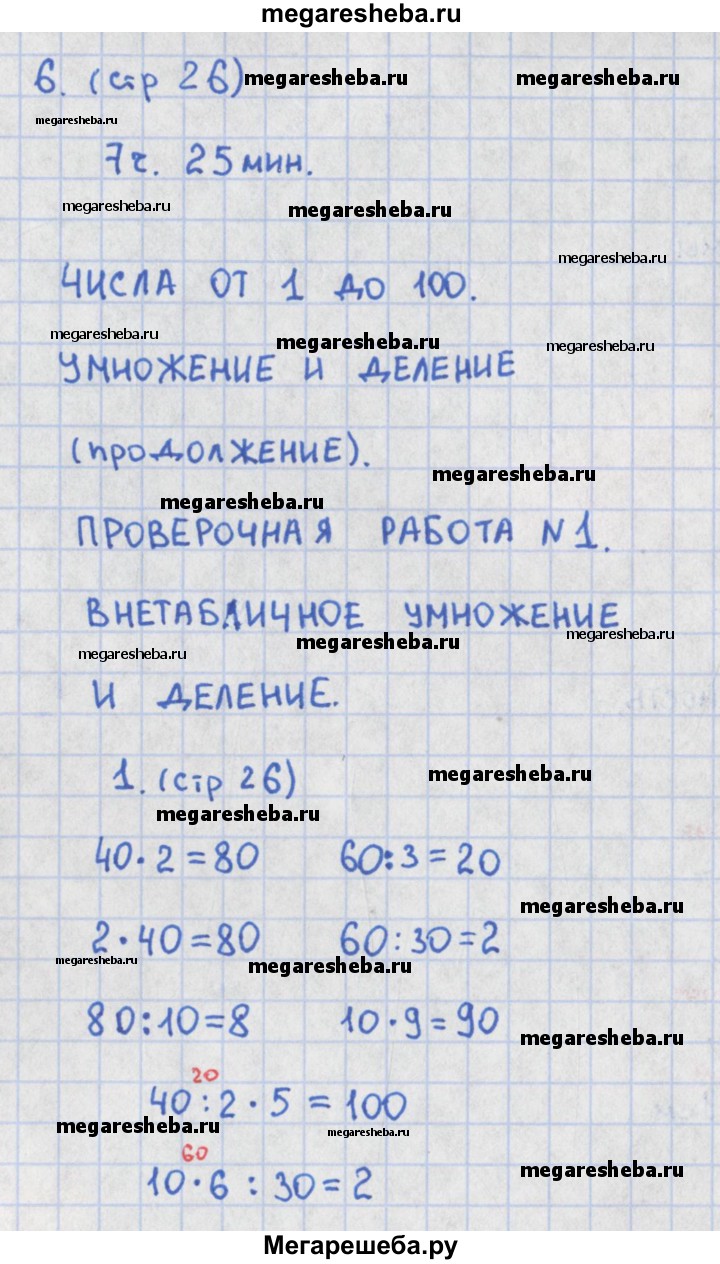 megaresheba.ru
6. (стр 26) megaresheba.ru megaresheba.ru
megaresheba.ru
7ч. 25 мин.
megaresheba.ru megaresheba.ru
megaresheba.ru
ЧИСЛА ОТ 1 ДО 100.
megaresheba.ru megaresheba.ru megaresheba.ru
УМНОЖЕНИЕ И ДЕЛЕНИЕ
(ПРОДОЛЖЕНИЕ).
megaresheba.ru
megaresheba.ru
ПРОВЕРОЧНАЯ РАБОТА N1.
ВНЕТАБЛИЧНОЕ УМНОЖЕНИЕ
megaresheba.ru megaresheba.ru megaresheba.ru
И ДЕЛЕНИЕ.
1. (стр 26)
megaresheba.ru
megaresheba.ru
40·2=80 60:3=20
megaresheba.ru
2·40=80 60:30=2
megaresheba.ru megaresheba.ru
80:10=8 10·9=90
megaresheba.ru
20
40:2·5=100
megaresheba.ru megaresheba.ru
60
10·6:30=2
megaresheba.ru
Мегарешеба.ру